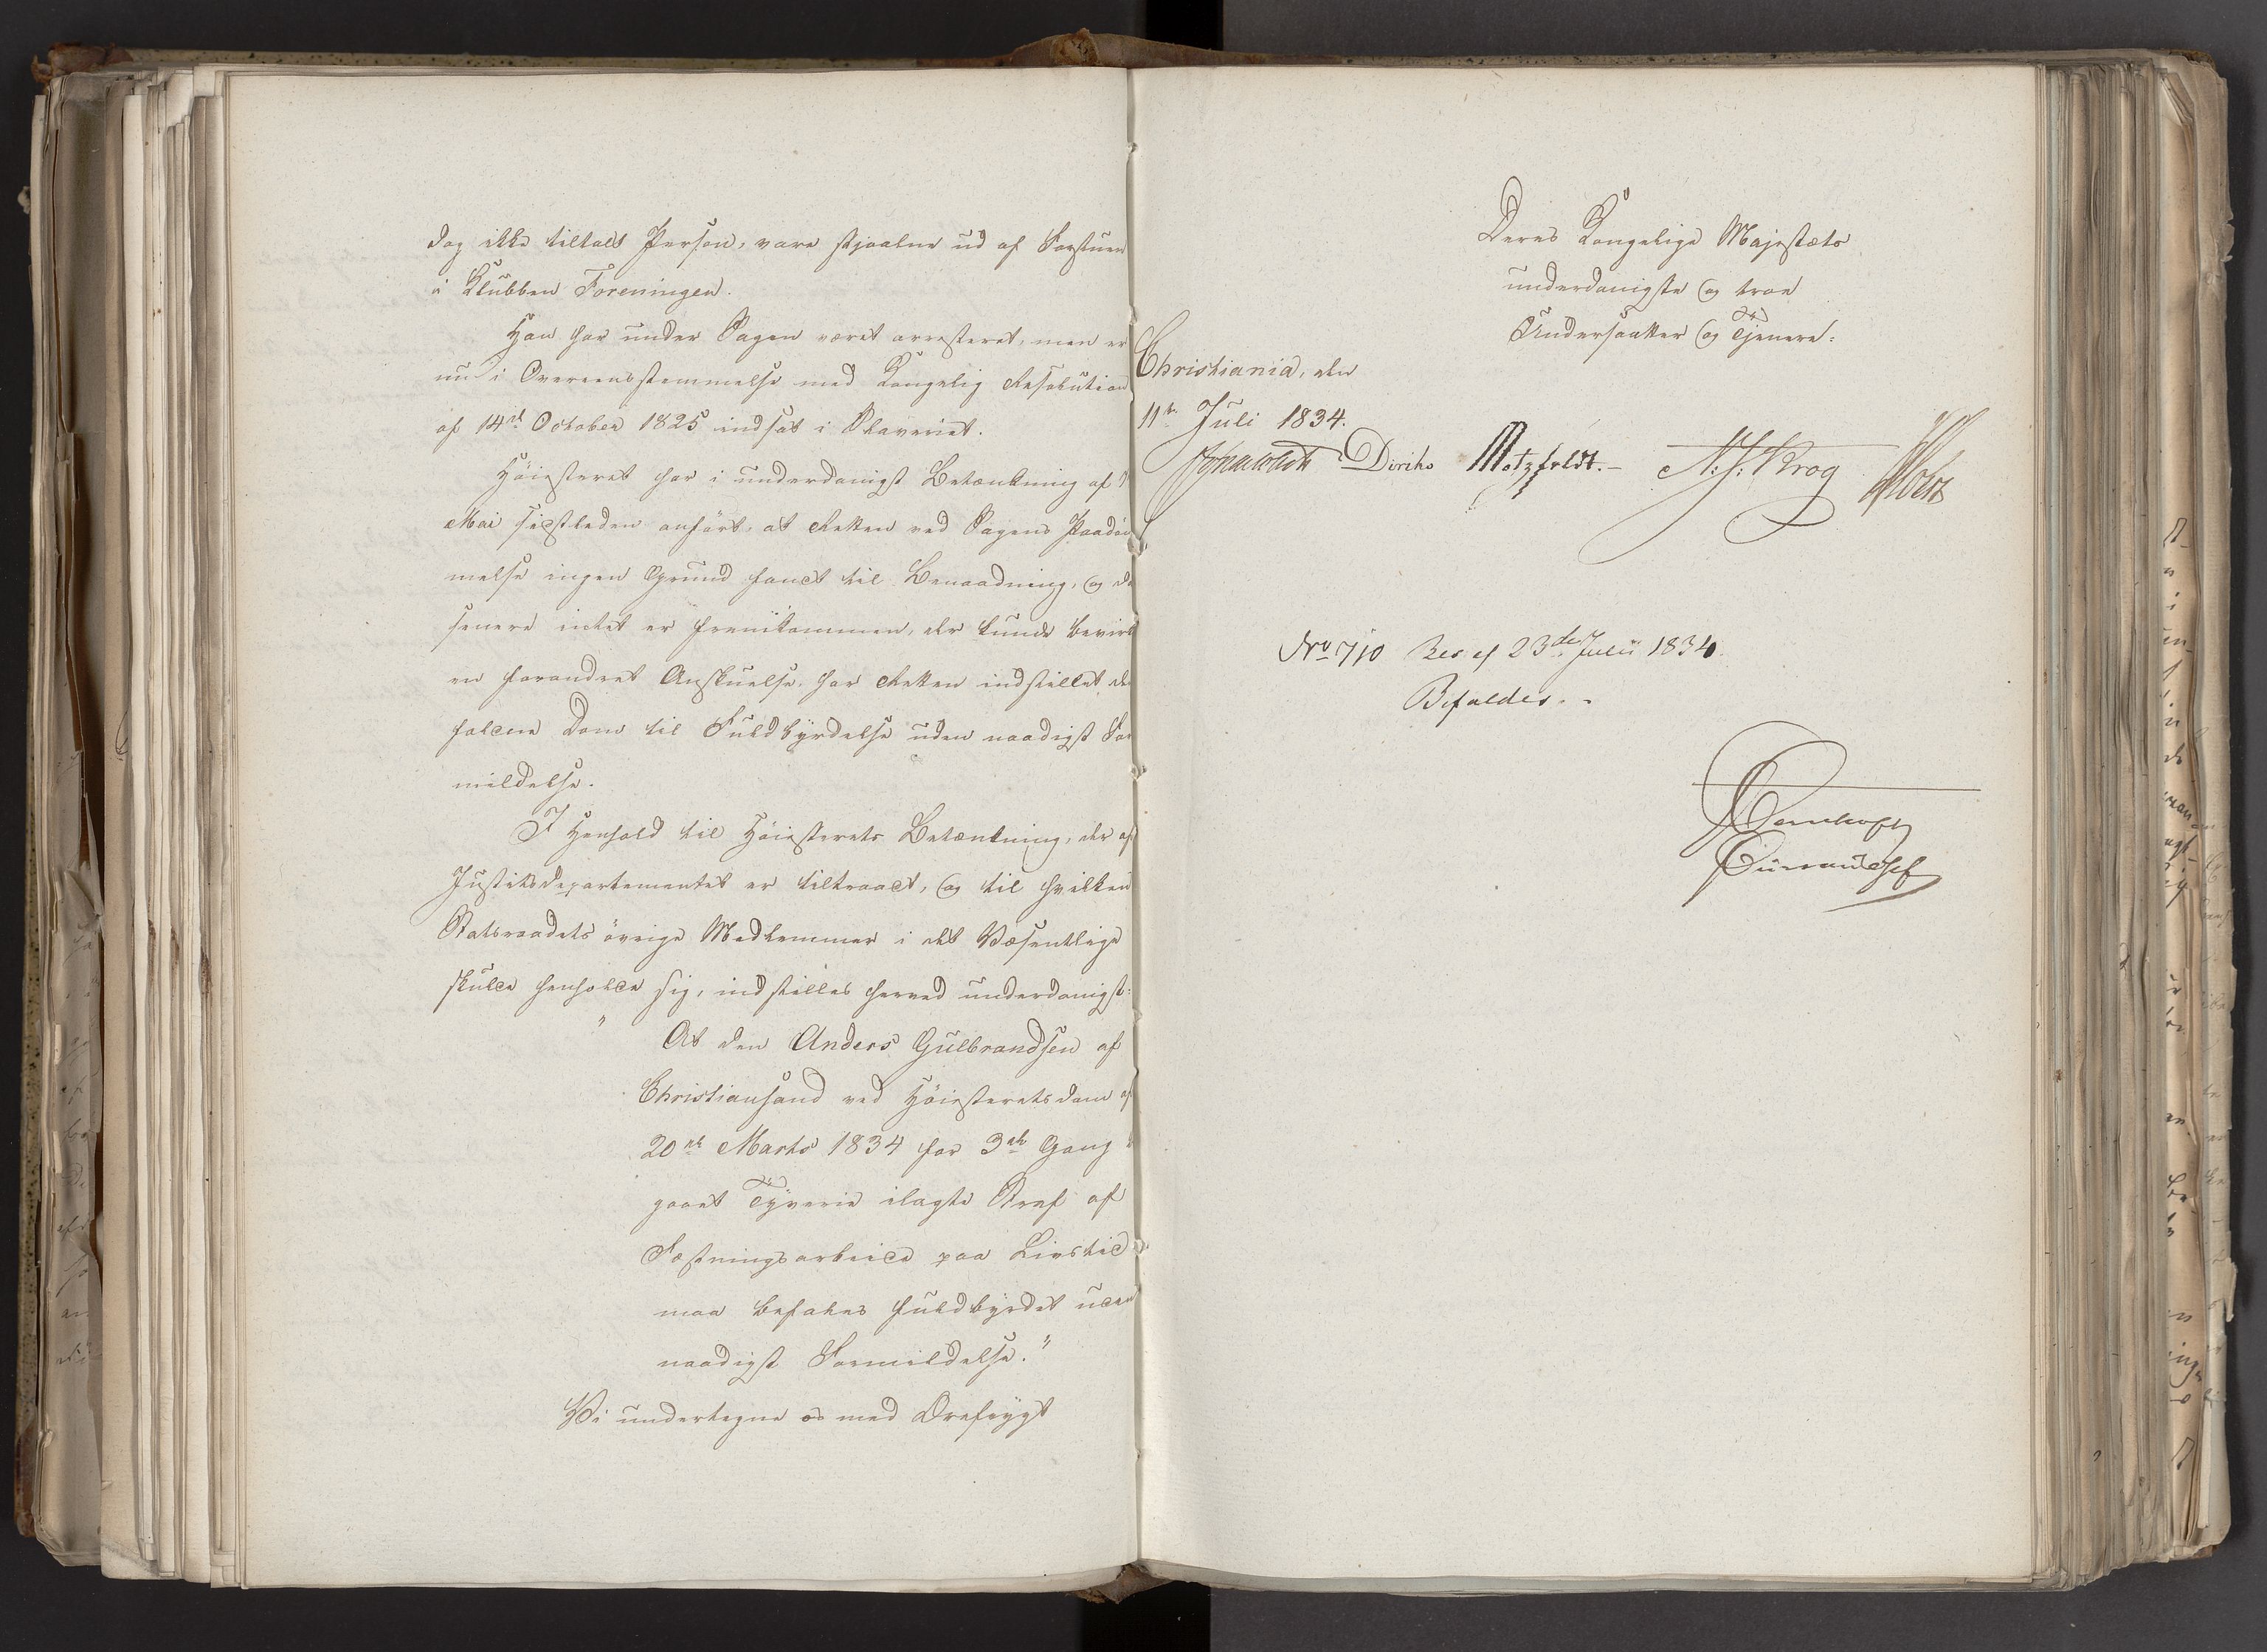 dog ikke tiltalt Person, vare stjaalne ud af Forstuen
i Klubben Foreningen.
Han har under Sagen været arresteret, men er
nu i Overeensstemmelse med Kongelig Resolution
af 14de October 1825 indsat i Slaveriet.
Höiesteret har i underdanigst Betænkning af
Mai sidstleden anført, at Retten ved Sagens Paadöm
melse ingen Grund fandt til Benaadning, og da
senere intet er fremkommen, der kunde bevirke
en forandret Anskuelse, har Retten indstillet den
faldne Dom til Fuldbyrdelse uden naadigst For
mildelse.
I Henhold til Höiesterets Betænkning, der af
Justitsdepartementet er tiltraadt, og til hvilken
Statsraadets övrige Medlemmer i det Væsentlige
skulde henholde sig, indstilles herved underdanigst:
" At den Anders Gulbrandsen af
Christiansand ved Höiesteretsdom af
20de Marts 1834 for 3die Gang
gaaet Tyverie ilagte Straf af
Fæstningsarbeide paa Livstid
maa befales fuldbyrdet uden
naadigst Formildelse."
Vi undertegne os med Ærefrygt
Deres Kongelige Majestæts
underdanigste og troe
Undersaatter og Tjenere:
Christiania, den
11te Juli 1834.
Diriks Motzfeldt.- N: J: Krog
No 710 Res af 23de Julii 1834.
Bifaldes. -